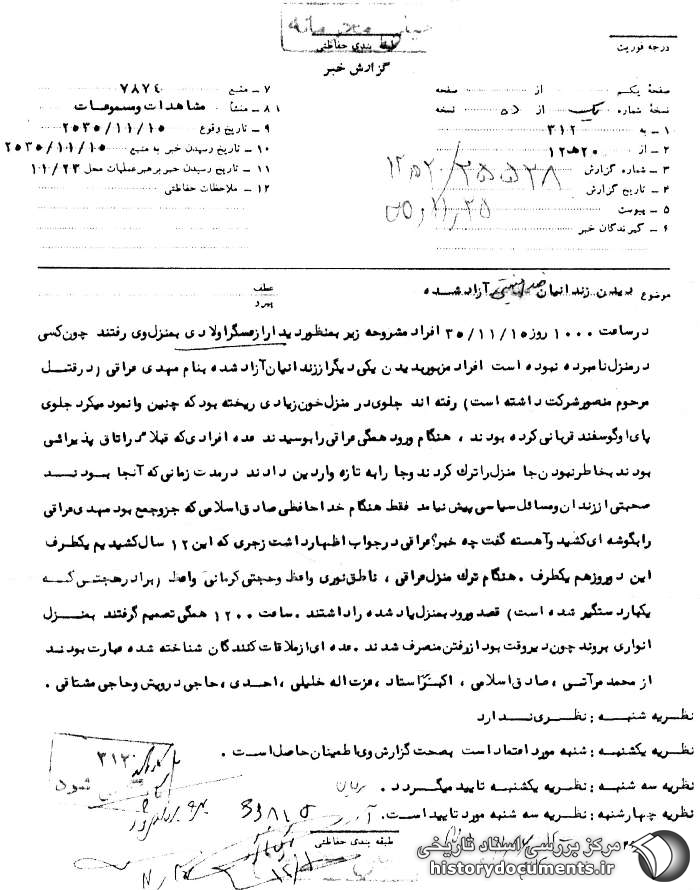 خیلی محرمانه
طبقه بندی حفاظتی
گزارش خبر
درجه فوریت
صفحهٔ یکم از صفحه
نسخهٔ شماره یک از ۵۵ نسخه
۱ ــ به ۳۱۲
۲ ــ از ۲۰هـ۱۲
۳ ــ شمارهٔ گزارش
۴ ــ تاریخ گزارش
۵ ــ پیوست
۶ ــ گیرندگان خبر
۷ ــ منبع ۷۸۷۴
۸ ــ منشأ مشاهدات ومسموعات
۹ ــ تاریخ وقوع ۲۵۳۵/۱۱/۱۵
۱۰ ــ تاریخ رسیدن خبر به منبع ۲۵۳۵/۱۱/۱۵
۱۱ ــ تاریخ رسیدن خبر برهبر عملیات محل ۱۱/۲۳
۱۲ ــ ملاحظات حفاظتی
موضوع دیدن زندانیان ضد امنیتی آزاد شده
عطف
پیرو
درساعت ۱۰۰۰ روز ۳۵/۱۱/۱۵ افراد مشروحه زیر بمنظور دیدار ازعسگراولادی بمنزل وی رفتند چون کسی
درمنزل نامبرده نبوده است افراد مزبور بدیدن یکی دیگر اززندانیان آزاد شده بنام مهدی عراقی (درقتل
مرحوم منصور شرکت داشته است) رفته اند جلوی در منزل خون زیادی ریخته بود که چنین وانمود میکرد جلوی
پای او گوسفند قربانی کرده بودند ، هنگام ورود همگی عراقی را بوسیدند عده افرادی که قبلا در اتاق پذیرائی
بودند بخاطر نبودن جا منزل را ترک کردند وجا رابه تازه واردین دادند درمدت زمانی که آنجا بودند
صحبتی اززندان ومسائل سیاسی پیش نیامد فقط هنگام خداحافظی صادق اسلامی که جزوجمع بود مهدی عراقی
رابگوشه ای کشید وآهسته گفت چه خبر؟ عراقی درجواب اظهارداشت زجری که این ۱۲ سال کشیدیم یکطرف
این دو روزهم یکطرف . هنگام ترک منزل عراقی ، ناطق نوری واعظ وحجتی کرمانی واعظ (برادرحجتی که
یکبار دستگیر شده است) قصد ورود بمنزل یاد شده را داشتند . ساعت ۱۲۰۰ همگی تصمیم گرفتند بمنزل
انواری بروند چون دیروقت بود ازرفتن منصرف شدند . عده ای ازملاقات کنندگان شناخته شده عبارت بودند
از محمد مرآتی ، صادق اسلامی ، اکبر استاد ، عزت اله خلیلی ، احمدی ، حاجی درویش وحاجی مشتاقی .
نظریه شنبه : نظری ندارد
نظریه یکشنبه : شنبه مورد اعتماد است بصحت گزارش وی اطمینان حاصل است .
نظریه سه شنبه : نظریه یکشنبه تایید میگردد .
نظریه چهارشنبه : نظریه سه شنبه مورد تاییداست .
طبقه بندی حفاظتی
مرکز بررسی اسناد تاریخی
historydocuments.ir